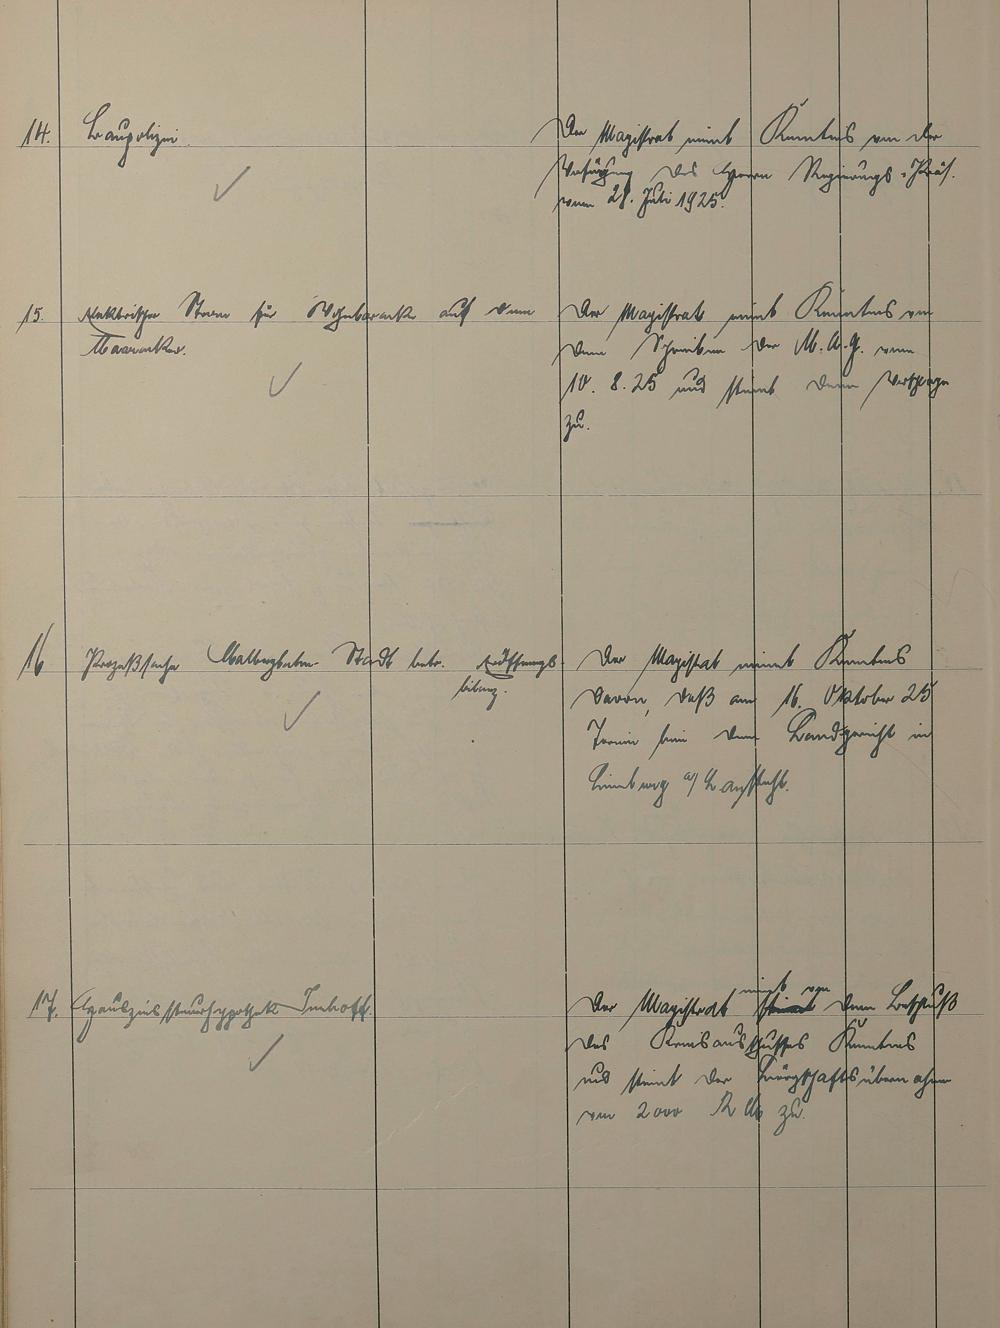 14. Baupolizei.
Der Magistrat nimmt Kenntnis von der
Verfügung des Herrn Regierungs-Präs.
vom 28. Juli 1925.
15. Elektrischer Strom für Wohnbaracke auf dem
Der Magistrat nimmt Kenntnis von
dem Schreiben der M.A.G. vom
10. 8. 25 und stimmt dem Vorschlage
zu.
16 Prozeßsache Malbergbahn - Stadt betr.
Der Magistrat nimmt Kenntnis
davon, daß am 16. Oktober 25
Termin bei dem Landgericht in
Limburg a/Lahn
17. Hauszinssteuerhypothek Imhoff.
nimmt von
Der Magistrat stimmt dem Beschluß
des Kreisausschusses Kenntnis
und stimmt der Bürgschaftsübernahme
von 2000 RM zu.